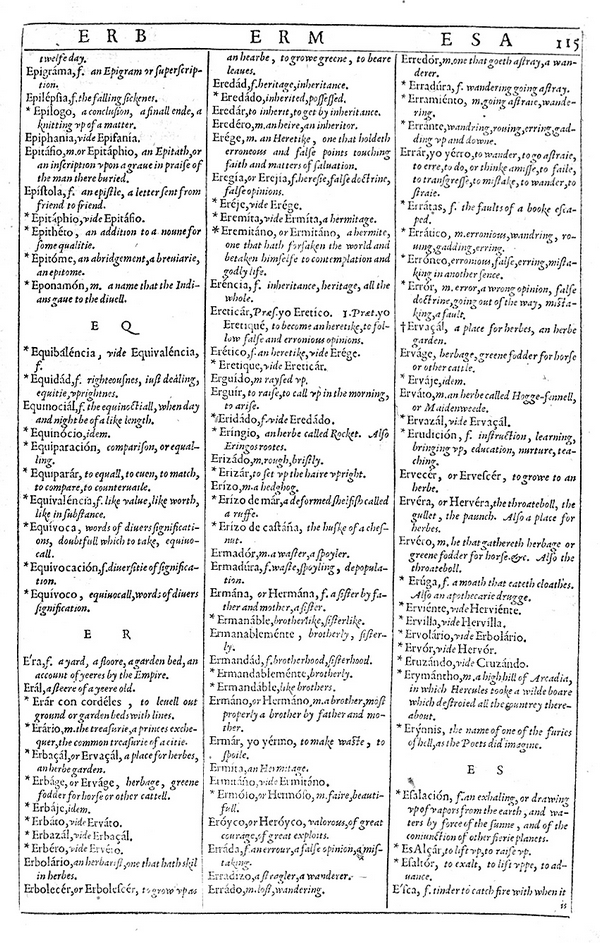 ERB
ERM
ESA
115
twelfe day.
Epigráma, f. an Epigram or superscrip-
tion.
Epilépsia, f. the falling sicknes.
* Epílogo, a conclusion, a finall ende, a
knitting vp of a matter.
Epiphania, vide Epifania.
Epitáfio, m. or Epitáphio, an Epitath, or
an inscription vpon a graue in praise of
the man there buried.
Epístola, f. an epistle, a letter sent from
friend to friend.
* Epitáphio, vide Epitáfio.
* Epithéto, an addition to a noune for
some qualitie.
* Epitóme, an abridgement, a breuiarie,
an epitome.
* Eponamón, m. a name that the Indi-
ans gaue to the diuell.
E Q
* Equibaléncia, vide Equivaléncia,
f.
* Equidád, f. righteousnes, iust dealing,
equitie, vprightnes.
Equinociál, f. the equinoctiall, when day
and night be of a like length.
* Equinócio, idem.
* Equiparación, comparison, or equal-
ling.
* Equiparár, to equall, to euen, to match,
to compare, to counteruaile.
* Equivaléncia, f. like value, like worth,
like in substance.
* Equívoca, words of diuers significati-
ons, doubtfull which to take, equiuo-
call.
* Equivocación, f. diuersitie of significa-
tion.
* Equívoco, equiuocall, words of diuers
signification.
E R
E'ra, f. a yard, a floore, a garden bed, an
account of yeeres by the Empire.
Erál, a steere of a yeere old.
* Erár con cordéles, to leuell out
ground or garden beds with lines.
* Erário, m. the treasurie, a princes exche-
quer, the common treasurie of a citie.
* Erbaçál, or Ervaçál, a place for herbes,
an herbe garden.
* Erbáge, or Erváge, herbage, greene
fodder for horse or other cattell.
* Erbáje, idem.
* Erbáto, vide Erváto.
* Erbazál, vide Erbaçál.
* Erbéro, vide Ervéro.
Erbolário, an herbarist, one that hath skil
in herbes.
Erbolecér, or Erbolescér, to grow vp as
an hearbe, to growe greene, to beare
leaues.
Eredád, f. heritage, inheritance.
* Eredádo, inherited, possessed.
Eredár, to inherit, to get by inheritance.
Eredéro, m. an heire, an inheritor.
Erége, m. an Heretike, one that holdeth
erroneous and false points touching
faith and matters of saluation.
Eregía, or Erejía, f. heresie, false doctrine,
false opinions.
* Eréje, vide Erége.
* Eremita, vide Ermíta, a hermitage.
* Eremitáno, or Ermitáno, a hermite,
one that hath forsaken the world and
betaken himselfe to contemplation and
godly life.
Eréncia, f. inheritance, heritage, all the
whole.
Ereticár, Præs. yo Eretico. 1. Præt. yo
Eretiqué, to become an heretike, to fol-
low false and erronious opinions.
Erético, f. an heretike, vide Erége.
* Eretique, vide Ereticár.
Erguído, m raysed vp.
Erguír, to raise, to call vp in the morning,
to arise.
* Eridádo, f. vide Eredádo.
* Eríngio, an herbe called Rocket. Also
Eringos rootes.
Erizádo, m. rough, bristly.
* Erizár, to set vp the haire vpright.
Erízo, m. a hedghog.
* Erizo de már, a deformed shelfish called
a ruffe.
* Erizo de castáña, the huske of a ches-
nut.
Ermadór, m. a waster, a spoyler.
Ermadúra, f. waste, spoyling, depopula-
tion.
Ermána, or Hermána, f. a sister by fa-
ther and mother, a sister.
* Ermanáble, brotherlike, sisterlike.
Ermanableménte, brotherly, sister-
ly.
Ermandád, f. brotherhood, sisterhood.
* Ermandableménte, brotherly.
* Ermandáble, like brothers.
Ermáno, or Hermáno, m. a brother, most
properly a brother by father and mo-
ther.
Ermár, yo yérmo, to make waste, to
spoile.
Ermita, an Hermitage.
Ermitáño, vide Ermitáno.
* Ermóso, or Hermóso, m. faire, beauti-
full.
Eróyco, or Heróyco, valorous, of great
courage, of great exploits.
Erráda, f. an errour, a false opinion, a mis-
taking.
Erradízo, a stragler, a wanderer.
Errádo, m. lost, wandering.
Erredór, m. one that goeth astray, a wan-
derer.
* Erradúra, f. wandering going astray.
* Erramiénto, m. going astraie, wande-
ring.
* Erránte, wandring, rouing, erring, gad-
ding vp and downe.
Errár, yo yérro, to wander, to go astraie,
to erre, to do, or thinke amisse, to faile,
to transgresse, to mistake, to wander, to
straie.
* Errátas, f. the faults of a booke esca-
ped.
* Errático, m. erronious, wandring, ro-
uing, gadding, erring.
* Erróneo, erronious, false, erring, mista-
king in another sence.
* Errór, m. error, a wrong opinion, false
doctrine, going out of the way, mista-
king, a fault.
† Ervaçál, a place for herbes, an herbe
garden.
Erváge, herbage, greene fodder for horse
or other cattle.
* Erváje, idem.
Erváto, m. an herbe called Hogge-fennell,
or Maidenweede.
* Ervazál, vide Ervaçál.
* Erudición, f. instruction, learning,
bringing vp, education, nurture, tea-
ching.
Ervecér, or Ervescér, to growe to an
herbe.
Ervéra, or Hervéra, the throateboll, the
gullet, the paunch. Also a place for
herbes.
Ervéro, m. he that gathereth herbage or
greene fodder for horse, &c. Also the
throateboll.
* Erúga, f. a moath that eateth cloathes.
Also an apothecarie drugge.
* Erviénte, vide Herviénte.
* Ervilla, vide Hervilla.
* Ervolário, vide Erbolário.
* Ervór, vide Hervór.
* Eruzándo, vide Cruzándo.
* Erymántho, m, a high hill of Arcadia,
in which Hercules tooke a wilde boare
which destroied all the countrey there-
about.
* Erýnnis, the name of one of the furies
of hell, as the Poets did imagine.
E S
* Esalación, f. an exhaling, or drawing
vp of vapors from the earth, and wa-
ters by force of the sunne, and of the
coniunction of other fierie planets.
* EsAlçár, to lift vp, to raise vp.
* Esaltár, to exalt, to lift vppe, to ad-
uance.
E'sca, f. tinder to catch fire with when it
is